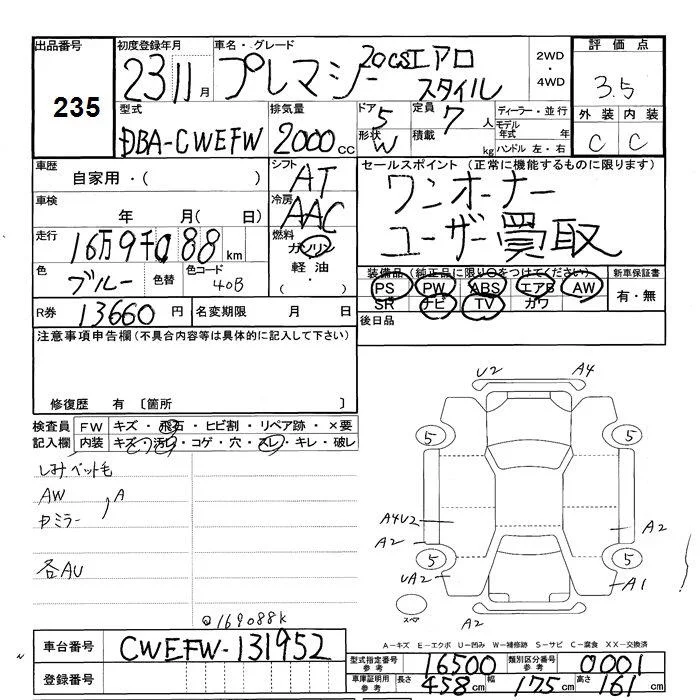 出品番号 初度登録年月 車名・グレード 2WD・4WD 評価点
235 23 11月 プレマシー 20CSエアロスタイル 3.5
外装 内装
C C
型式 排気量 ドア 形状 定員 積載 ディーラー・並行
DBA-CWEFW 2000cc 5 W 7人 kg モデル年式 年
ハンドル 左・右
車歴 シフト セールスポイント (正常に機能するものに限ります)
自家用・( ) AT ワンオーナー
車検 冷房
年 月( 日) AAC ユーザー買取
走行 燃料
16万9千088km ガソリン
軽油・( )
色 色替 色コード
ブルー 40B
装備品(純正品に限り○をつけてください) 新車保証書
PS PW ABS エアB AW 有・無
SR ナビ TV カワ
R券 13660円 名変期限 月 日 後日品
注意事項申告欄(不具合内容等は具体的に記入して下さい)
修復歴 有 〔箇所 〕
検査員記入欄 FW キズ・飛石・ヒビ割・リペア跡・×要
内装 キズ・汚れ・コゲ・穴・スレ・キレ・破レ
しみ ペット毛
AW A
ドミラー
各AU
@169088k
U2 A4
5 5
A4U2 A2
A2
5 5
UA2 A1
スペア A2
A-キズ E-エクボ U-凹み W-補修跡 S-サビ C-腐食 XX-交換済
車台番号 CWEFW-131952
登録番号
型式指定番号 参考 16500 類別区分番号 参考 0001
車庫証明用 参考 長さ 458cm 幅 175cm 高さ 161cm